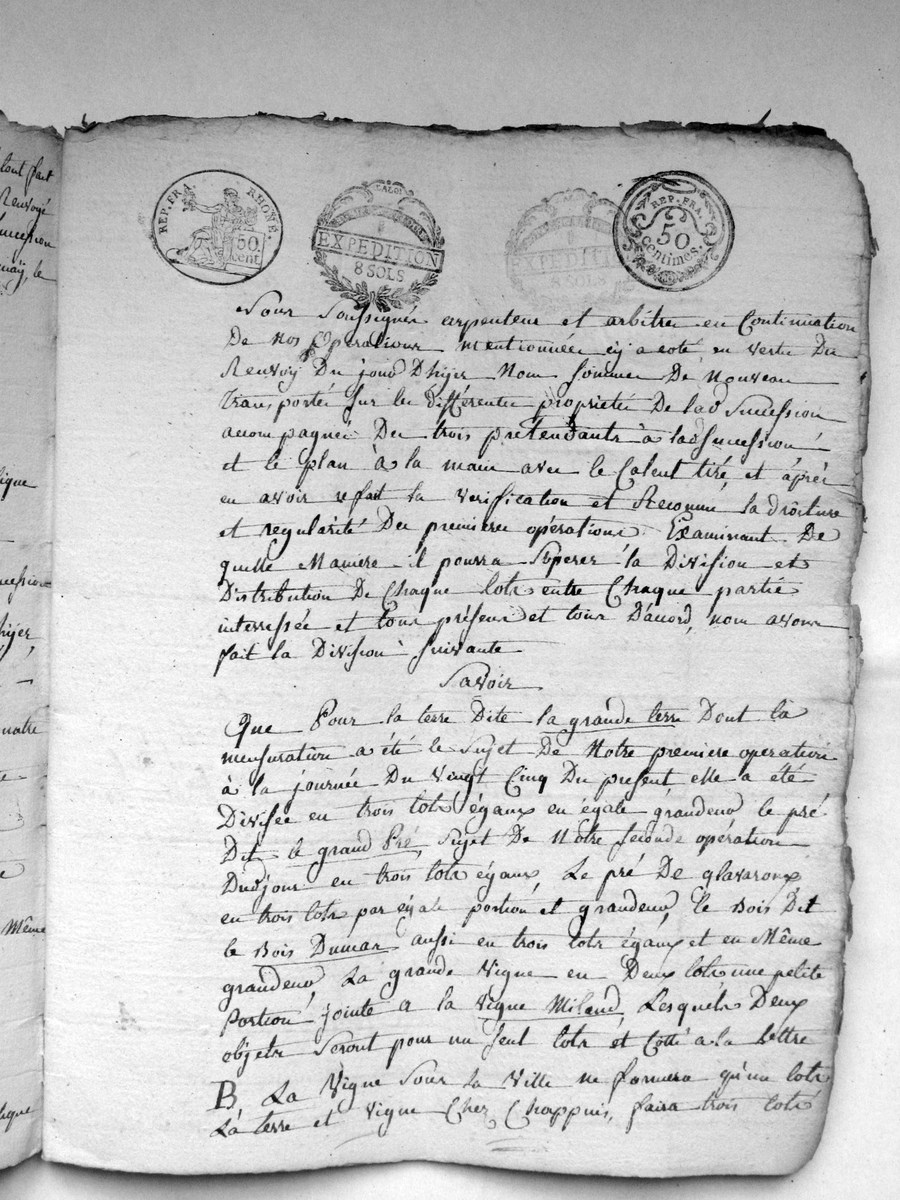 tout fait
Renvoyé
succession
le
REP. FRA. RHONE.
50 cent.
EXPEDITION
8 SOLS
EXPEDITION
8 SOLS
REP. FRA.
50
centimes.
Nous Soussignés arpenteur et arbitre en Continuation
De Nos Operations mentionnées cy a coté, en vertu Du
Renvoy Du jour D'hyer Nous sommes De Nouveau
transportés sur les differentes proprietés De lad Succession
accompagnés Des trois prétendants à lad Succession
et le plan à la main avec le Calcul tiré, et après
en avoir refait la verification et Reconnu la drôiture
et regularité Des premieres opérations Examinant De
quelle Maniere il pourra s'operer la Division et
Distribution De Chaque lots entre Chaque partie
interressée et tous présens et tous D'acord, nous avons
fait la Division suivante
Savoir
Que Pour la terre Dite la grande terre Dont la
mensuration a été le Sujet De Notre premiere operation
à la journée Du Vingt Cinq Du present, elle a été
Divisée en trois lots égaux en égale grandeur le pré
Dit le grand Pré, Sujet De Notre seconde opération
Dud jour en trois lots égaux, Le pré De glavaroux
en trois lots par égale portion et grandeur, le Bois Dit
le Bois Dumar aussi en trois lots égaux et en Même
grandeur, La grande Vigne en Deux lots une petite
Portion jointe a la Vigne Miland, Lesquels Deux
objets Seront pour un seul lots et Cotté a la Lettre
B La Vigne Sous la Ville ne formera qu'un lots
La terre et Vigne Chez Chappuis, faira trois lots